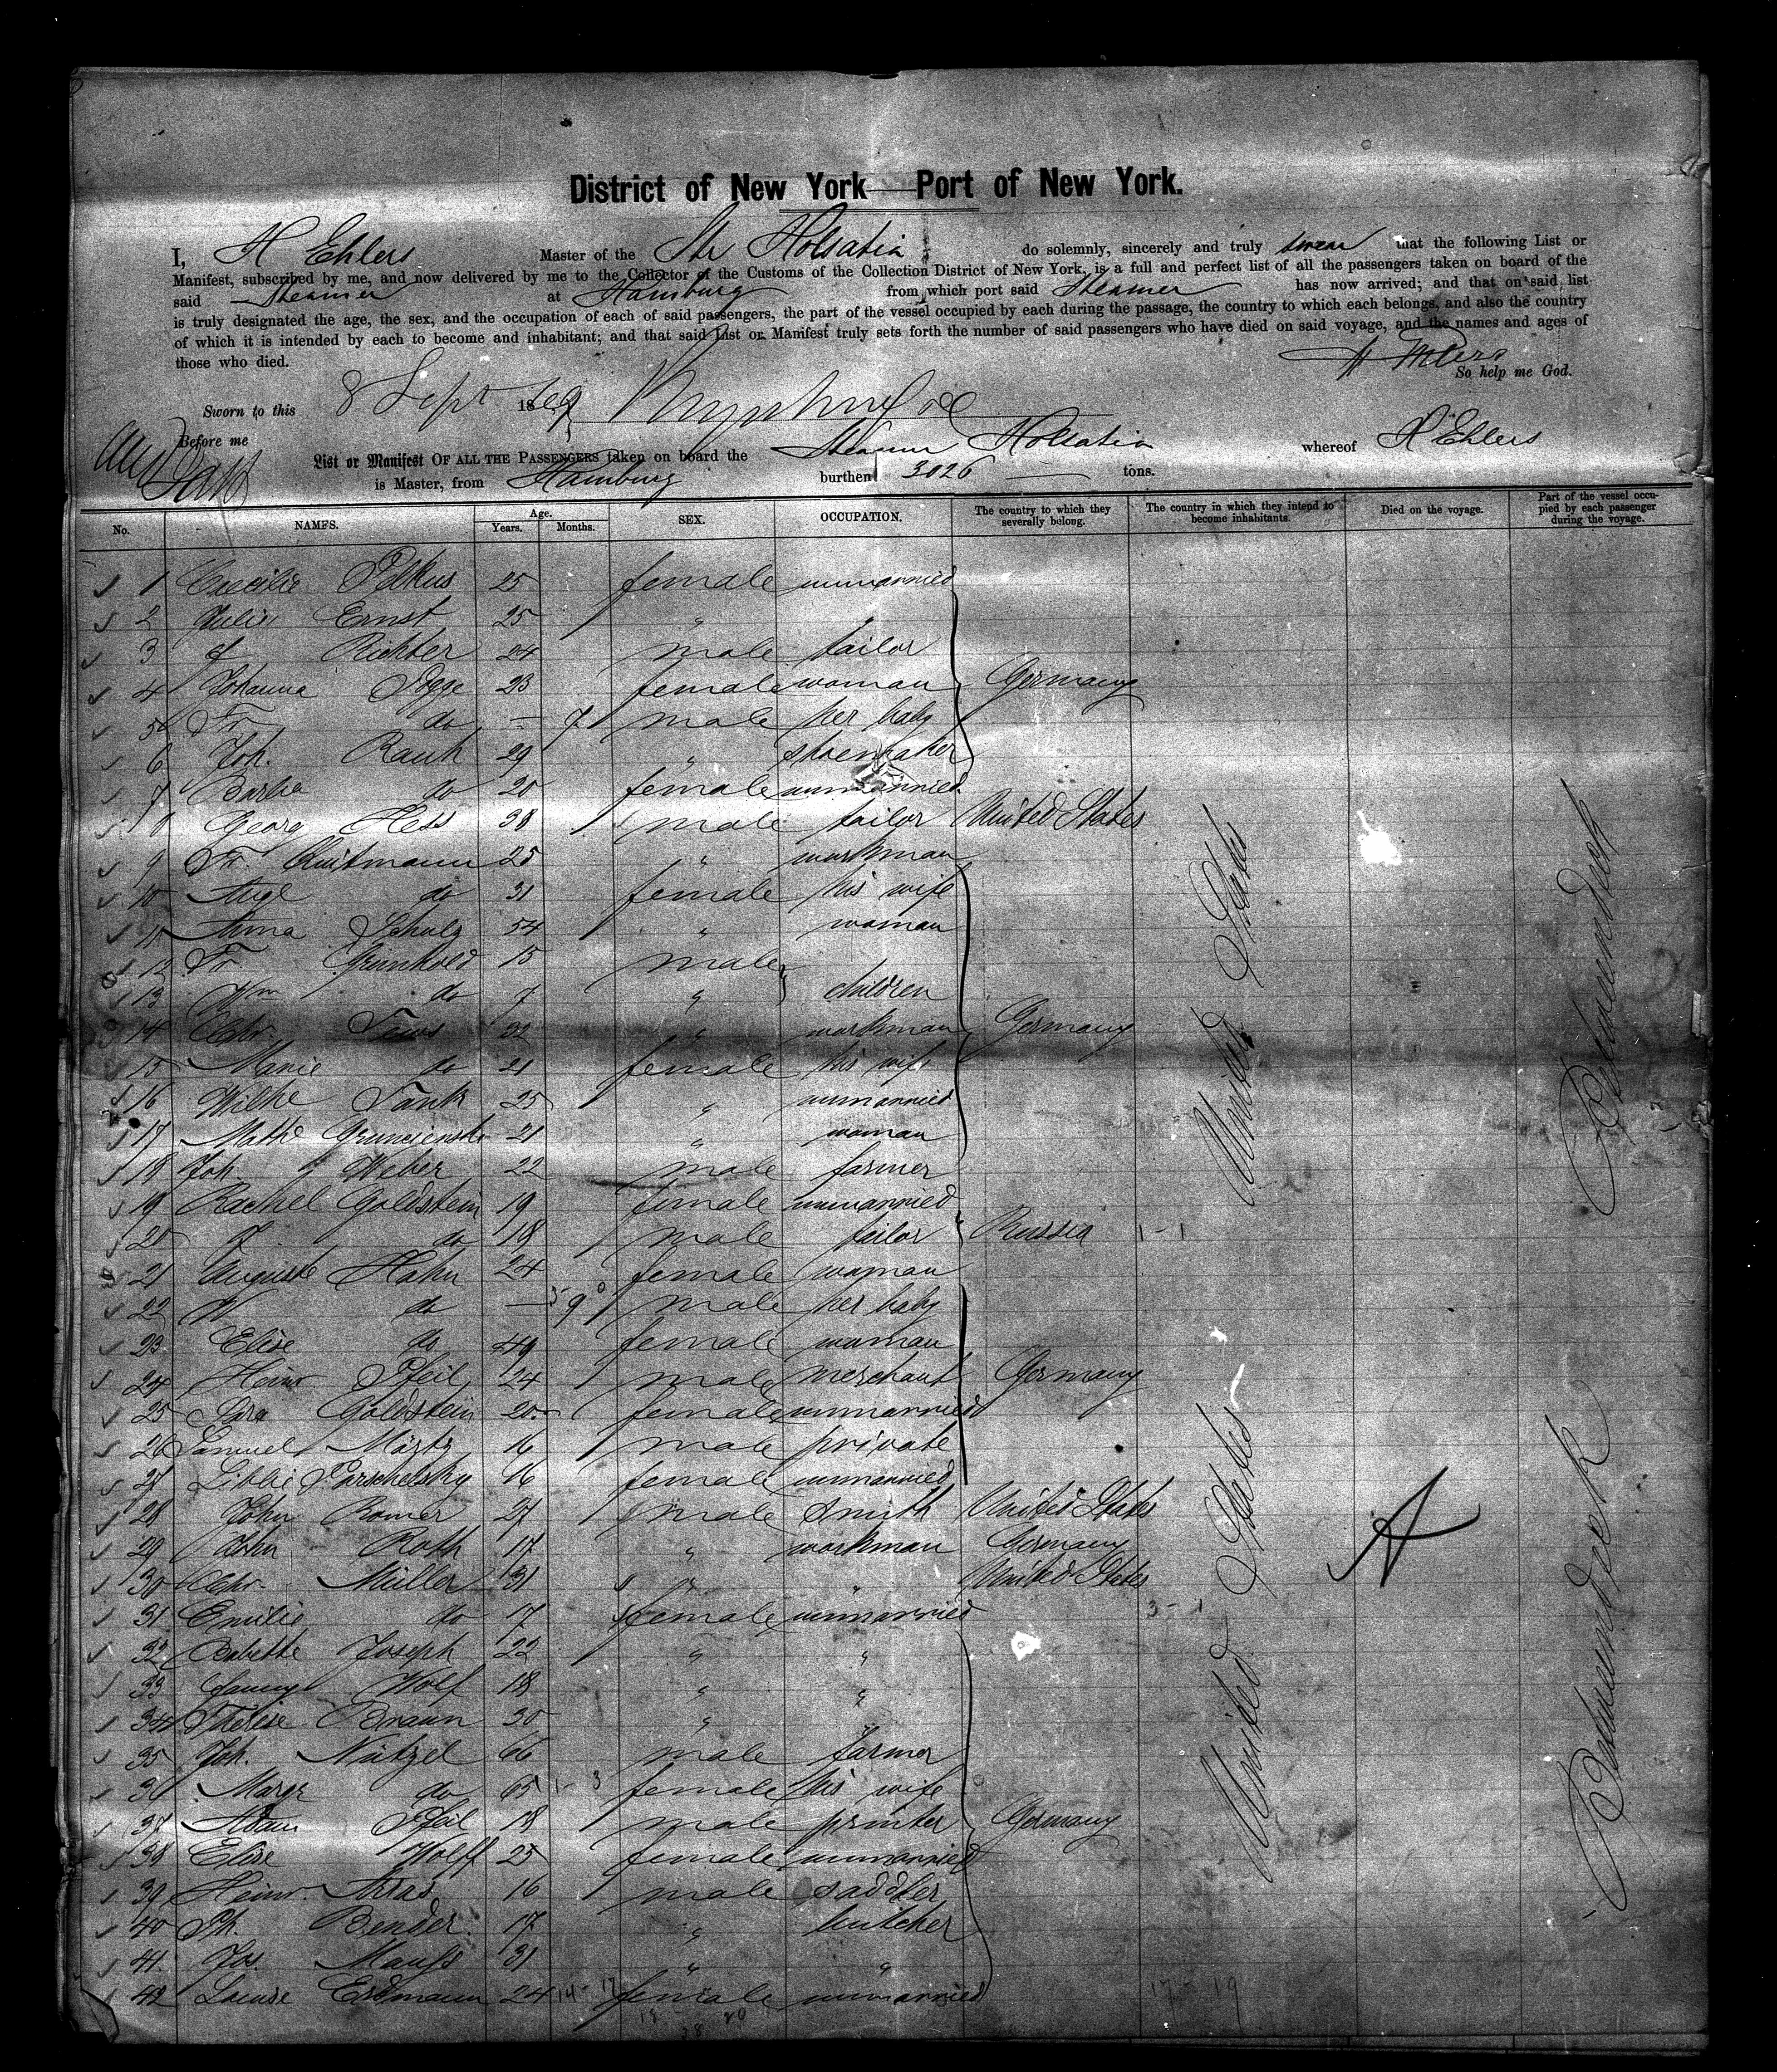 District of New York — Port of New York.
I, H Ehlers Master of the Str Holsatia do solemnly, sincerely and truly swear that the following List or
Manifest, subscribed by me, and now delivered by me to the Collector of the Customs of the Collection District of New York, is a full and perfect list of all the passengers taken on board of the
said Steamer at Hamburg from which port said Steamer has now arrived; and that on said list
is truly designated the age, the sex, and the occupation of each of said passengers, the part of the vessel occupied by each during the passage, the country to which each belongs, and also the country
of which it is intended by each to become and inhabitant; and that said List or Manifest truly sets forth the number of said passengers who have died on said voyage, and the names and ages of
those who died. H Ehlers
So help me God.
Sworn to this 8 Sept 1869
Before me
List or Manifest OF ALL THE PASSENGERS taken on board the Steamer Holsatia whereof H Ehlers
is Master, from Hamburg burthen 3026 tons.
No. NAMES. Age. Years. Months. SEX. OCCUPATION. The country to which they severally belong. The country in which they intend to become inhabitants. Died on the voyage. Part of the vessel occupied by each passenger during the voyage.
1 Caecilie 25 female unmarried
2 Julie Ernst 25 "
3 Richter 24 male tailor
4 Johanna 23 female woman Germany
5 Fr do — 7 male her baby
6 Joh. Rauh 29 " shoemaker
7 Barba do 20 female unmarried
8 Georg Hess 38 male tailor United States
9 Fr. 25 " workman
10 Augе do 31 female his wife
11 Anna Schulz 54 " woman
12 Fr Grunhold 15 male
13 Wm do 7 " children
14 Chr. 22 " workman Germany
15 Marie do 21 female his wife
16 Wilhe Tank 25 " unmarried
17 Mathe 21 " woman
18 Joh. Weber 22 male farmer
19 Rachel Goldstein 19 female unmarried
20 do 18 male tailor Russia
21 Auguste Hahn 24 female woman
22 W do — 9 male her baby
23 Elise do 49 female woman
24 Heinr Pfeil 24 male merchant Germany
25 Goldstein 20 female unmarried
26 Samuel 16 male private
27 Libbie 16 female unmarried
28 John Romer 27 male smith United States
29 John Roth 17 " workman Germany
30 Chr. Müller 31 " " United States
31 Emilie do 17 female unmarried
32 Babette Joseph 22 " "
33 Fanny Wolf 18 " "
34 Therese Braun 30 "
35 Joh. Nützel 66 male farmer
36 Margr do 65 female his wife
37 Adam Pfeil 18 male printer Germany
38 Elise Wolff 25 female unmarried
39 Heinr. 16 male saddler
40 Ph. Bender 17 " butcher
41 Jos. 31 " "
42 Louise Erdmann 24 female unmarried
United States
United States
United
A